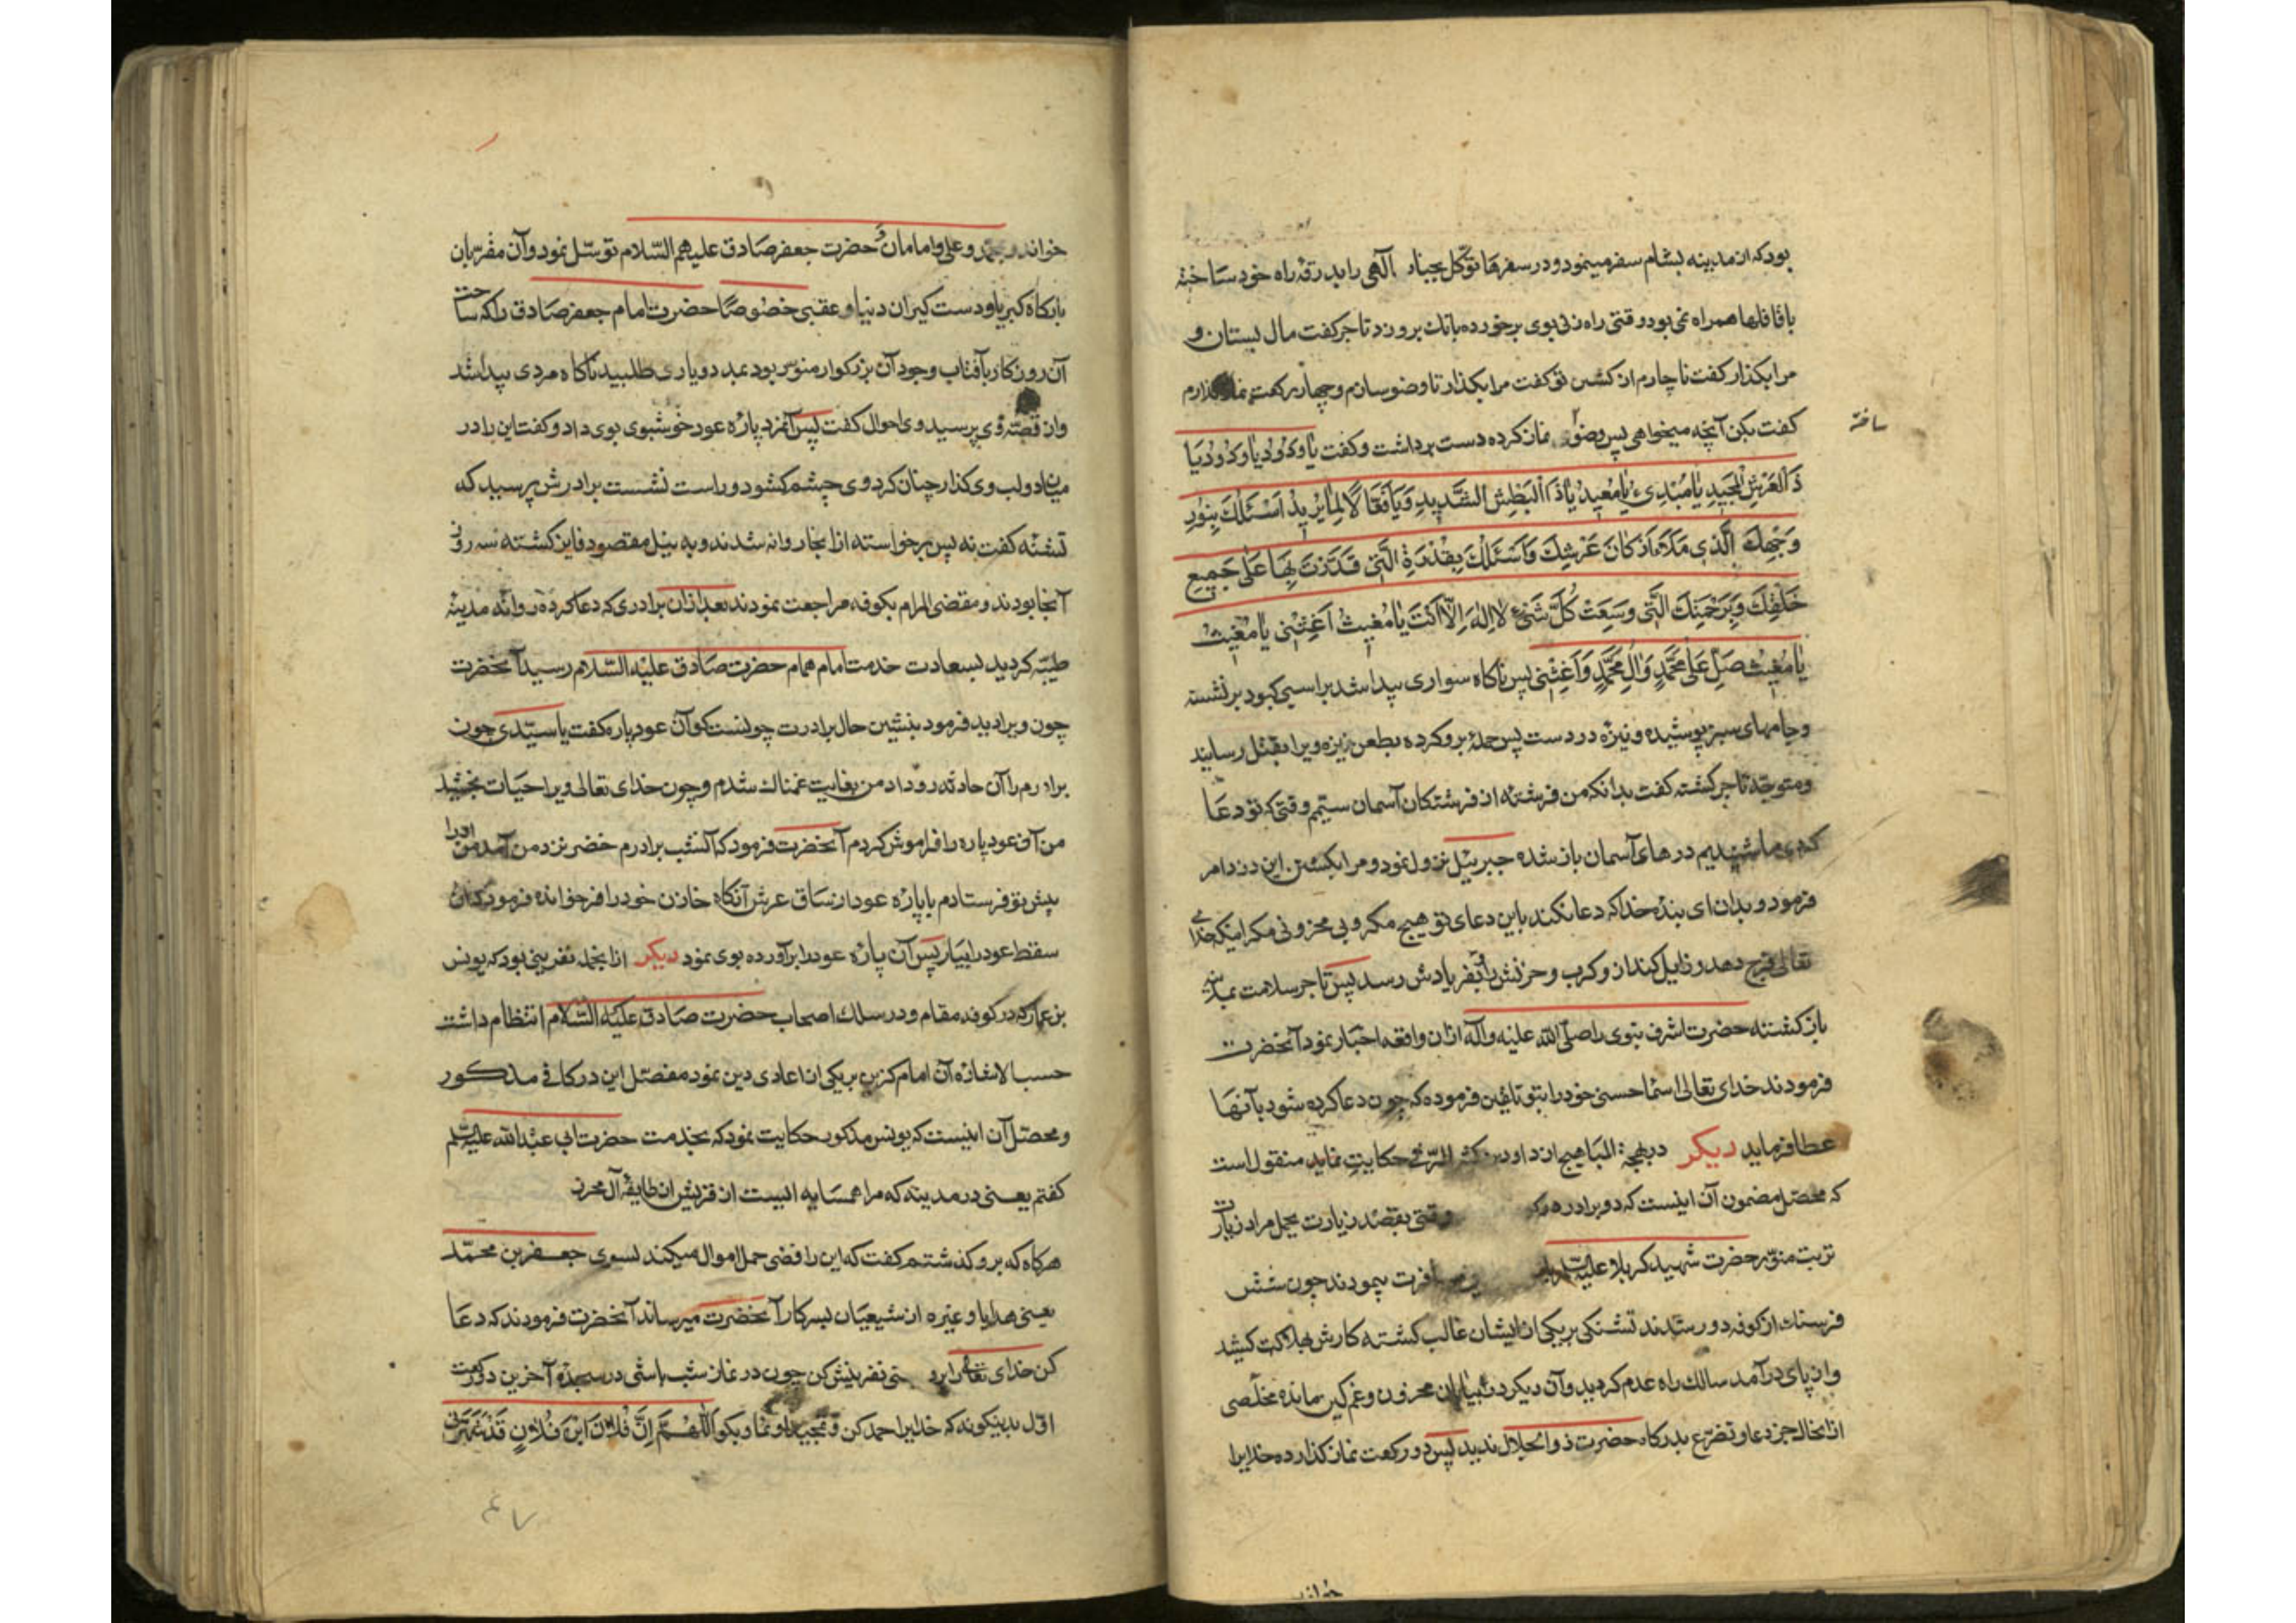 بودکه از مدینه بشام سفر مینمود و در سفرها توکل بجناب آلهی را بدرقه راه خود ساخته
با قافلها همراه نمی بود وقتی راه زنی بوی برخورده بانک برو زد تاجر کفت مال بستان و
مرا بکذار کفت ناچارم از کشتن تو کفت مرا بکذار تا وضو سازم و چهار رکعت نماز کذارم
کفت بکن آنچه میخواهی پس وضو نماز کرده دست برداشت و کفت یا وَدُودُ یا وَدُودُ یَا
ساخته
ذَا الْعَرْشِ الْمَجِیدِ یَا مُبْدِیُ یَا مُعِیدُ یَا ذَا الْبَطْشِ الشَّدِیدِ وَیَا فَعَّالًا لِمَا یُرِیدُ اَسْئَلُكَ بِنُورِ
وَجْهِكَ الَّذِی مَلَاَ اَرْكَانَ عَرْشِكَ وَاَسْئَلُكَ بِقُدْرَةِ الَّتِی قَدَرْتَ بِهَا عَلَی جَمِیعِ
خَلْقِكَ وَبِرَحْمَتِكَ الَّتِی وَسِعَتْ كُلَّ شَیْءٍ لَا اِلٰهَ اِلَّا اَنْتَ یَا مُغِیثُ اَغِثْنِی یَا مُغِیثُ
یَا مُغِیثُ صَلِّ عَلَی مُحَمَّدٍ وَاٰلِ مُحَمَّدٍ وَاَغِثْنِی پس ناکاه سواری پیدا شد براسبی کبود برنشسته
و جامهای سبز پوشیده و نیزه در دست پس حمله برو کرده بطعن نیزه ویرا بقتل رسانید
و متوجه تاجر کشته کفت بدانکه من فرشته از فرشتکان آسمان سیّم وقتی که تو دعا
کردی ما شنیدیم درهای آسمان باز شده جبرییل نزول نمود و مرا بکشتن این دزد امر
فرمود و بدان ای بنده خدا که دعا نکند باین دعای تو هیچ مکروبی محزونی مکر اینکه خدای
تعالی فرج دهد و زایل کند از و کرب و حزنش را بفریادش رسد پس تاجر سلامت بمدینه
باز کشته حضرت اشرف نبوی را صلّی الله علیه وآله ازان واقعه اخبار نمود آنحضرت
فرمودند خدای تعالی اسماء حسنی خود را بتو تلقین فرموده که چون دعا کرده شود بآنها
عطا فرماید دیکر در بهجة المباهج از داود بن کثیر الرقی حکایت نماید منقول است
که محصّل مضمون آن اینست که دو برادر وقتی بقصد زیارت بحمل مراد زیارت
تربت منوّر حضرت شهید کربلا علیه السّلام پیمودند چون شش
فرسنك از کوفه دور شدند تشنکی بر یکی از ایشان غالب کشته کارش بهلاکت کشید
و از پای درآمد سالك راه عدم کردید و آن دیکر در بیابان محزون و غمکین مانده مخلّصی
ازانحال جز دعا و تضرّع بدرکاه حضرت ذوالجلال ندید پس دو رکعت نماز کذارده خدایرا
خواند
خواند و بمحمد و علی و امامان و حضرت جعفر صادق علیهم السّلام توسّل نمود و آن مقرّبان
بارکاه کبریا و دست کیران دنیا و عقبی خصوصًا حضرت امام جعفر صادق را که ساحت
آن روزکار بآفتاب وجود آن بزرکوار منوّر بود بمدد و یاری طلبید ناکاه مردی پیدا شد
و از قصّه وی پرسید وی احوال کفت پس آنمرد پاره عود خوشبوی بوی داد و کفت این را در
میان دو لب وی کذار چنان کرد وی چشم کشود و راست نشست برادرش پرسید که
تشنه کفت نه پس برخواسته ازانجا روانه شدند و به نیل مقصود فایز کشته سه روز
آنجا بودند و مقضی المرام بکوفه مراجعت نمودند بعد ازان برادری که دعا کرده روانه مدینه
طیّبه کردید بسعادت خدمت امام همام حضرت صادق علیه السّلام رسید آنحضرت
چون ویرا دید فرمود بنشین حال برادرت چونست کو آن عود پاره کفت یا سیّدی چون
برادرم را آن حادثه رو داد من بغایت غمناك شدم و چون خدای تعالی ویرا حیات بخشید
من آن عود پاره را فراموش کردم آنحضرت فرمود که آنشب برادرم خضر نزد من آمد من اورا
پیش تو فرستادم با پاره عود از ساق عرش آنکاه خازن خود را فرخوانده فرمود که آن
سقط عود را بیار پس آن پاره عود را برآورده بوی نمود دیکر ازانجمله نفرینی بود که یونس
بن عمار که در کوفه مقام و در سلك اصحاب حضرت صادق علیه السّلام انتظام داشت
حسب الاشاره آن امام کزین بر یکی از اعادی دین نمود مفصّل این در کافی مذکور
و محصّل آن اینست که یونس مذکور حکایت نمود که بخدمت حضرت ابی عبدالله علیه السّلم
کفتم یعنی در مدینه که مرا همسایه ایست از قریش از طایفه آل محرز
هرکاه که برو کذشتم کفت که این رافضی حمل اموال میکند بسوی جعفر بن محمّد
یعنی هدایا و غیره از شیعیان بسرکار آنحضرت میرساند آنحضرت فرمودند که دعا
کن خدای تعالی را نفرینش کن چون در نماز شب باشی در سجده آخرین دو رکعت
اوّل بدینکونه که خدایرا حمد کن و تمجید او نما و بکو اَللّٰهُمَّ اِنَّ فُلَانَ ابْنَ فُلَانٍ قَدْ شَهَرَنِی